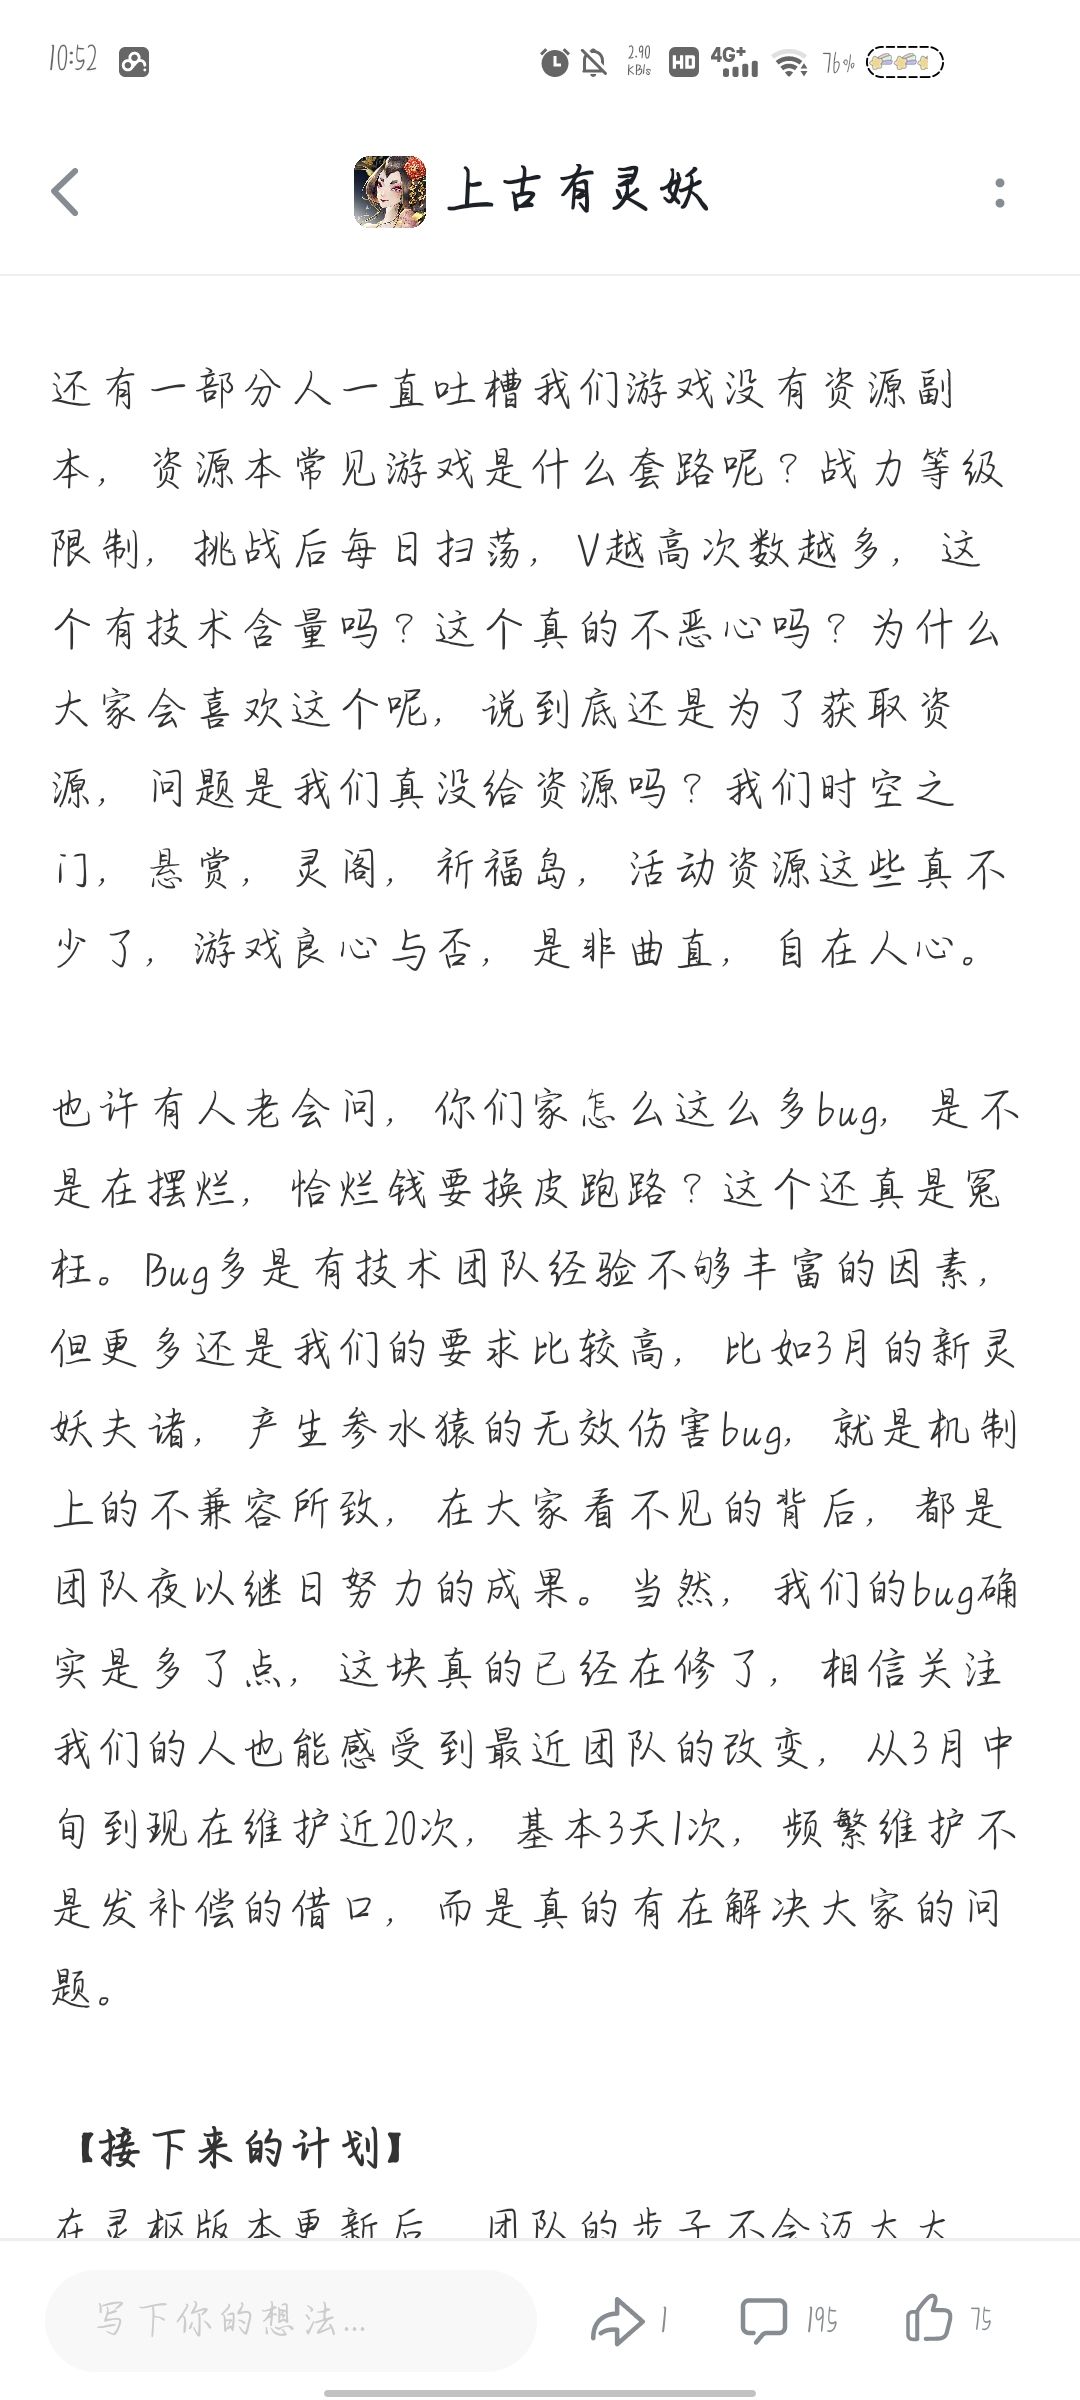 10:52
2.90 KB/s HD 4G+ 76%
上古有灵妖
还有一部分人一直吐槽我们游戏没有资源副
本，资源本常见游戏是什么套路呢？战力等级
限制，挑战后每日扫荡，V越高次数越多，这
个有技术含量吗？这个真的不恶心吗？为什么
大家会喜欢这个呢，说到底还是为了获取资
源，问题是我们真没给资源吗？我们时空之
门，悬赏，灵阁，祈福岛，活动资源这些真不
少了，游戏良心与否，是非曲直，自在人心。
也许有人老会问，你们家怎么这么多bug，是不
是在摆烂，恰烂钱要换皮跑路？这个还真是冤
枉。Bug多是有技术团队经验不够丰富的因素，
但更多还是我们的要求比较高，比如3月的新灵
妖夫诸，产生参水猿的无效伤害bug，就是机制
上的不兼容所致，在大家看不见的背后，都是
团队夜以继日努力的成果。当然，我们的bug确
实是多了点，这块真的已经在修了，相信关注
我们的人也能感受到最近团队的改变，从3月中
旬到现在维护近20次，基本3天1次，频繁维护不
是发补偿的借口，而是真的有在解决大家的问
题。
【接下来的计划】
在灵枢版本更新后，团队的步子不会迈太大
写下你的想法...
1
195
75